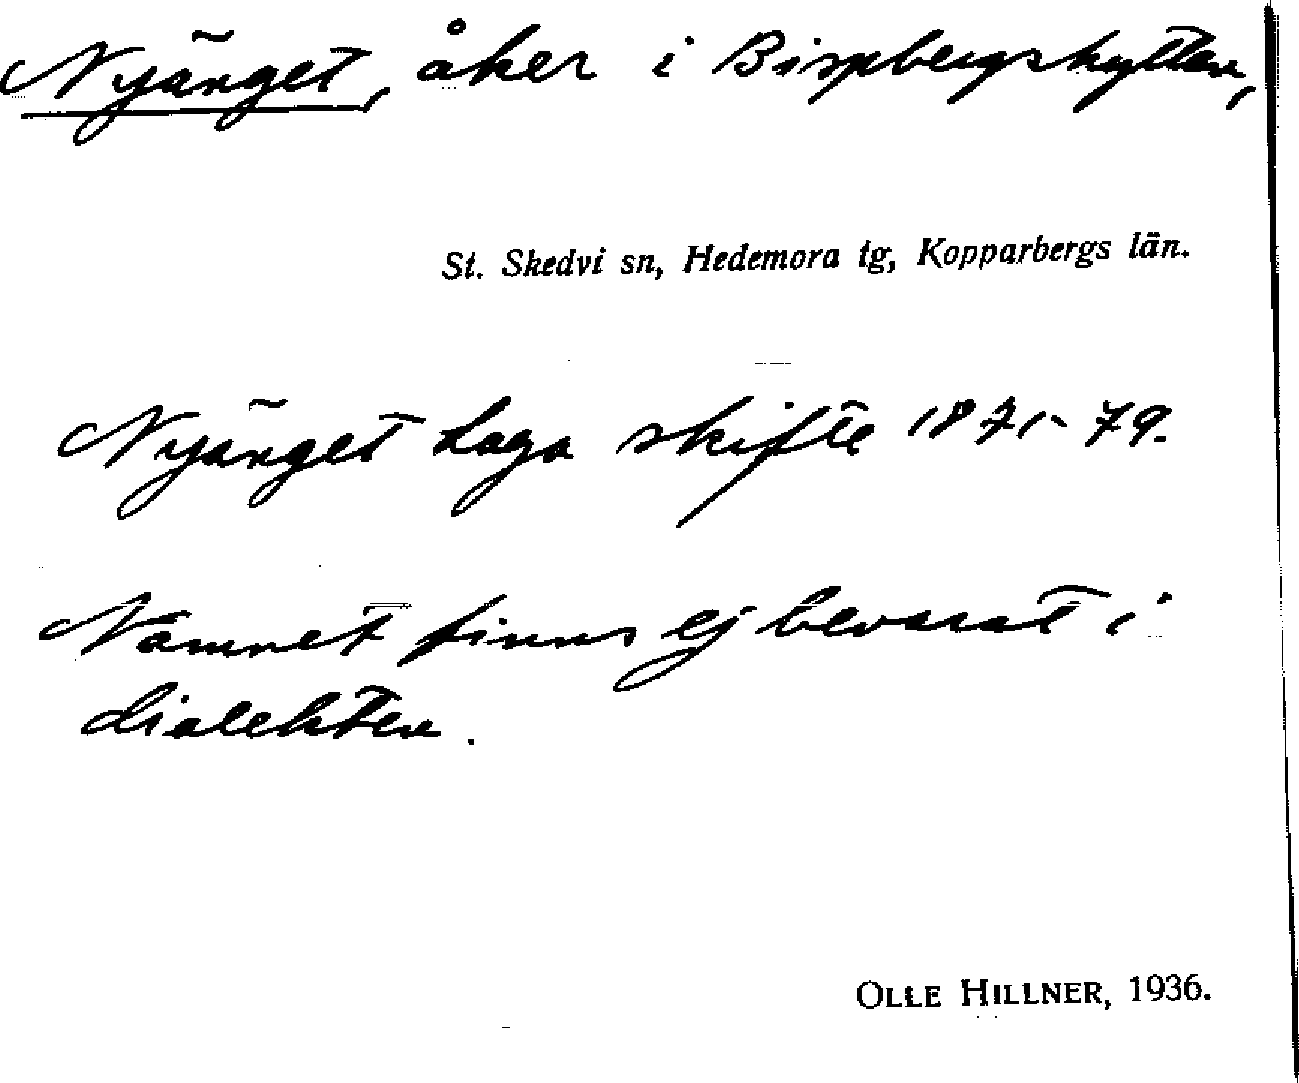 Nyänget, åker i Bispbergshyttan,
St. Skedvi sn, Hedemora tg, Kopparbergs län.
Nyänget Laga skifte 1871-79.
Namnet finns ej bevarat i
dialekten.
OLLE HILLNER, 1936.